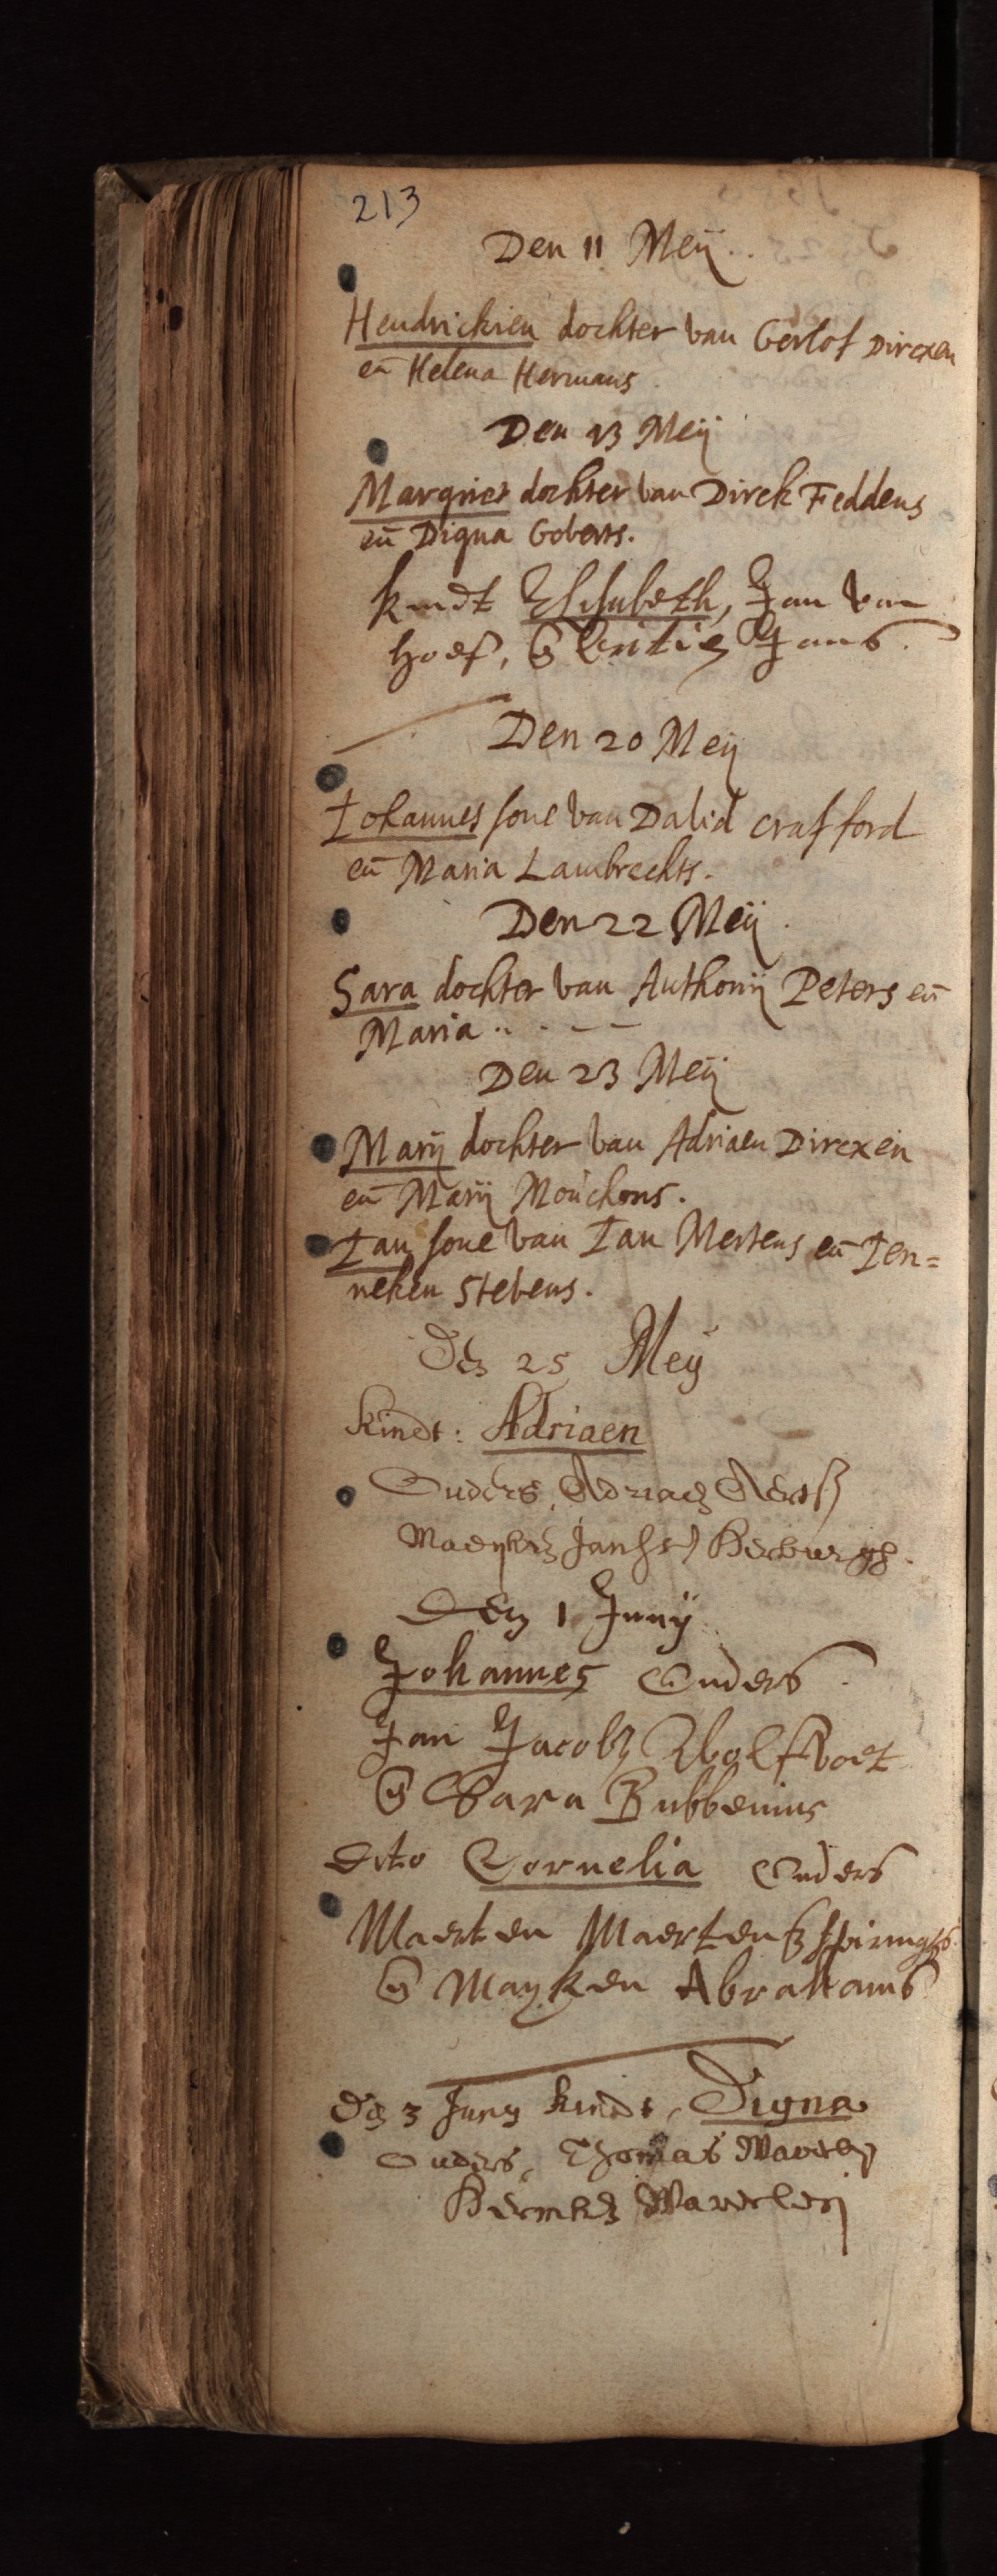 213
Den 11 Meij..
Hendrickien dochter van Gerlof Dircxen
en̄ Helena Hermans
Den 13 Meij
Margriet dochter van Dirck Feddens
en̄ Digna Goberts.
kindt Elisabeth, Jan van
hoef, Jans.
Den 20 Meij
Iohannes sone van David Crafford
en̄ Maria Lambrechts.
Den 22 Meij.
Sara dochter van Anthonij Peters en̄
Maria .. . — —
Den 23 Meij
Marij dochter van Adriaen Dircxen
en̄ Marij Mouchons.
Ian sone van Ian Mertens en̄ Ien=
neken Stevens.
Den 25 Meij
kindt: Adriaen
Ouders, Adriaen
Maeyken Jansen
Den 1 Junij
Johannes Ouders
Jan Jacobz Wolffvoet
en Sara Bubbenius
Dito Cornelia Ouders
Maerten Maertensz
en Mayken Abrahams
Den 3 Juny kindt, Digna
Ouders, Thomas